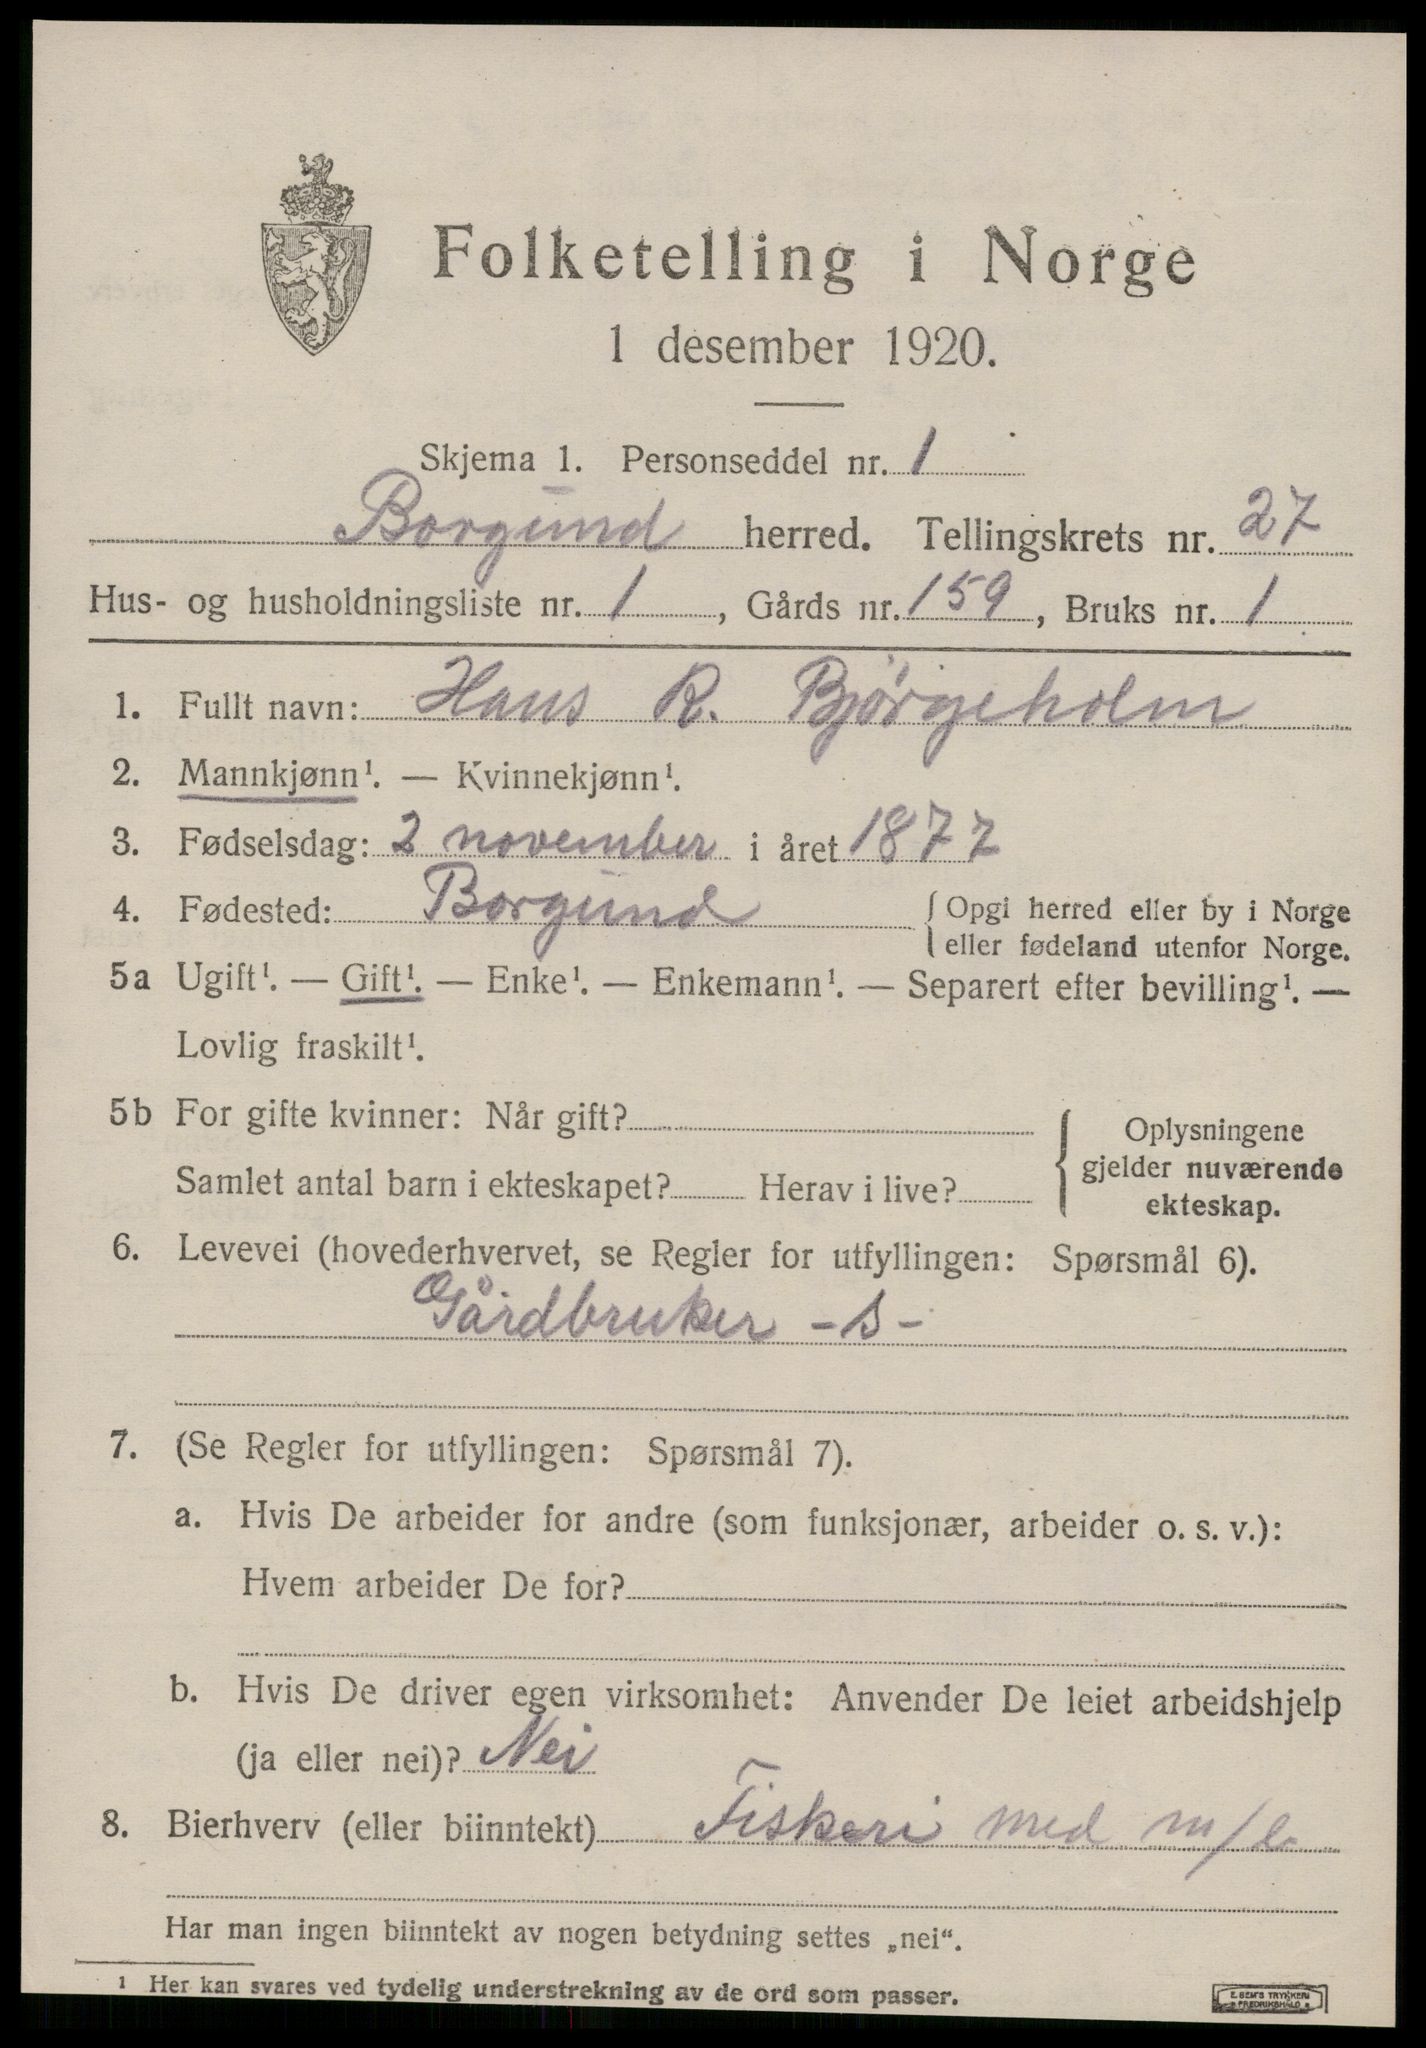 Folketelling i Norge
1 desember 1920.
Skjema 1. Personseddel nr. 1
Borgund herred. Tellingskrets nr. 27
Hus- og husholdningsliste nr. 1, Gårds nr. 159, Bruks nr. 1
1. Fullt navn: Hans R. Bjørgeholm
2. Mannkjønn¹. — Kvinnekjønn¹.
3. Fødselsdag: 2 november i året 1877
4. Fødested: Borgund { Opgi herred eller by i Norge
eller fødeland utenfor Norge.
5a Ugift¹. — Gift¹. — Enke¹. — Enkemann¹. — Separert efter bevilling¹. —
Lovlig fraskilt¹.
5b For gifte kvinner: Når gift?
Samlet antal barn i ekteskapet? Herav i live?
Oplysningene
gjelder nuværende
ekteskap.
6. Levevei (hovederhvervet, se Regler for utfyllingen: Spørsmål 6).
Gårdbruker -s-
7. (Se Regler for utfyllingen: Spørsmål 7).
a. Hvis De arbeider for andre (som funksjonær, arbeider o. s. v.):
Hvem arbeider De for?
b. Hvis De driver egen virksomhet: Anvender De leiet arbeidshjelp
(ja eller nei)? Nei
8. Bierhverv (eller biinntekt) Fiskeri med m/
Har man ingen biinntekt av nogen betydning settes „nei“.
¹ Her kan svares ved tydelig understrekning av de ord som passer.
E. SEM'S TRYKKERI
FREDRIKSHALD